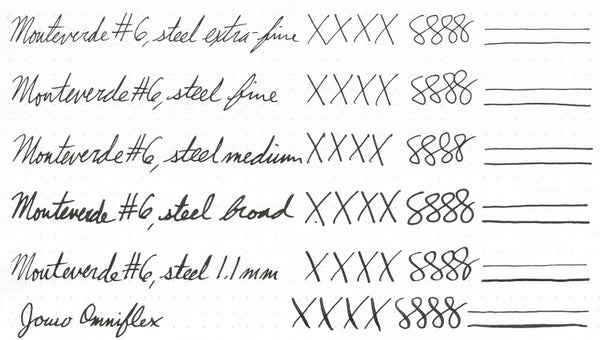 Monteverde #6, steel extra-fine XXXX 8888
Monteverde #6, steel fine XXXX 8888
Monteverde #6, steel medium XXXX 8888
Monteverde #6, steel broad XXXX 8888
Monteverde #6, steel 1.1mm XXXX 8888
Jowo Omniflex XXXX 8888